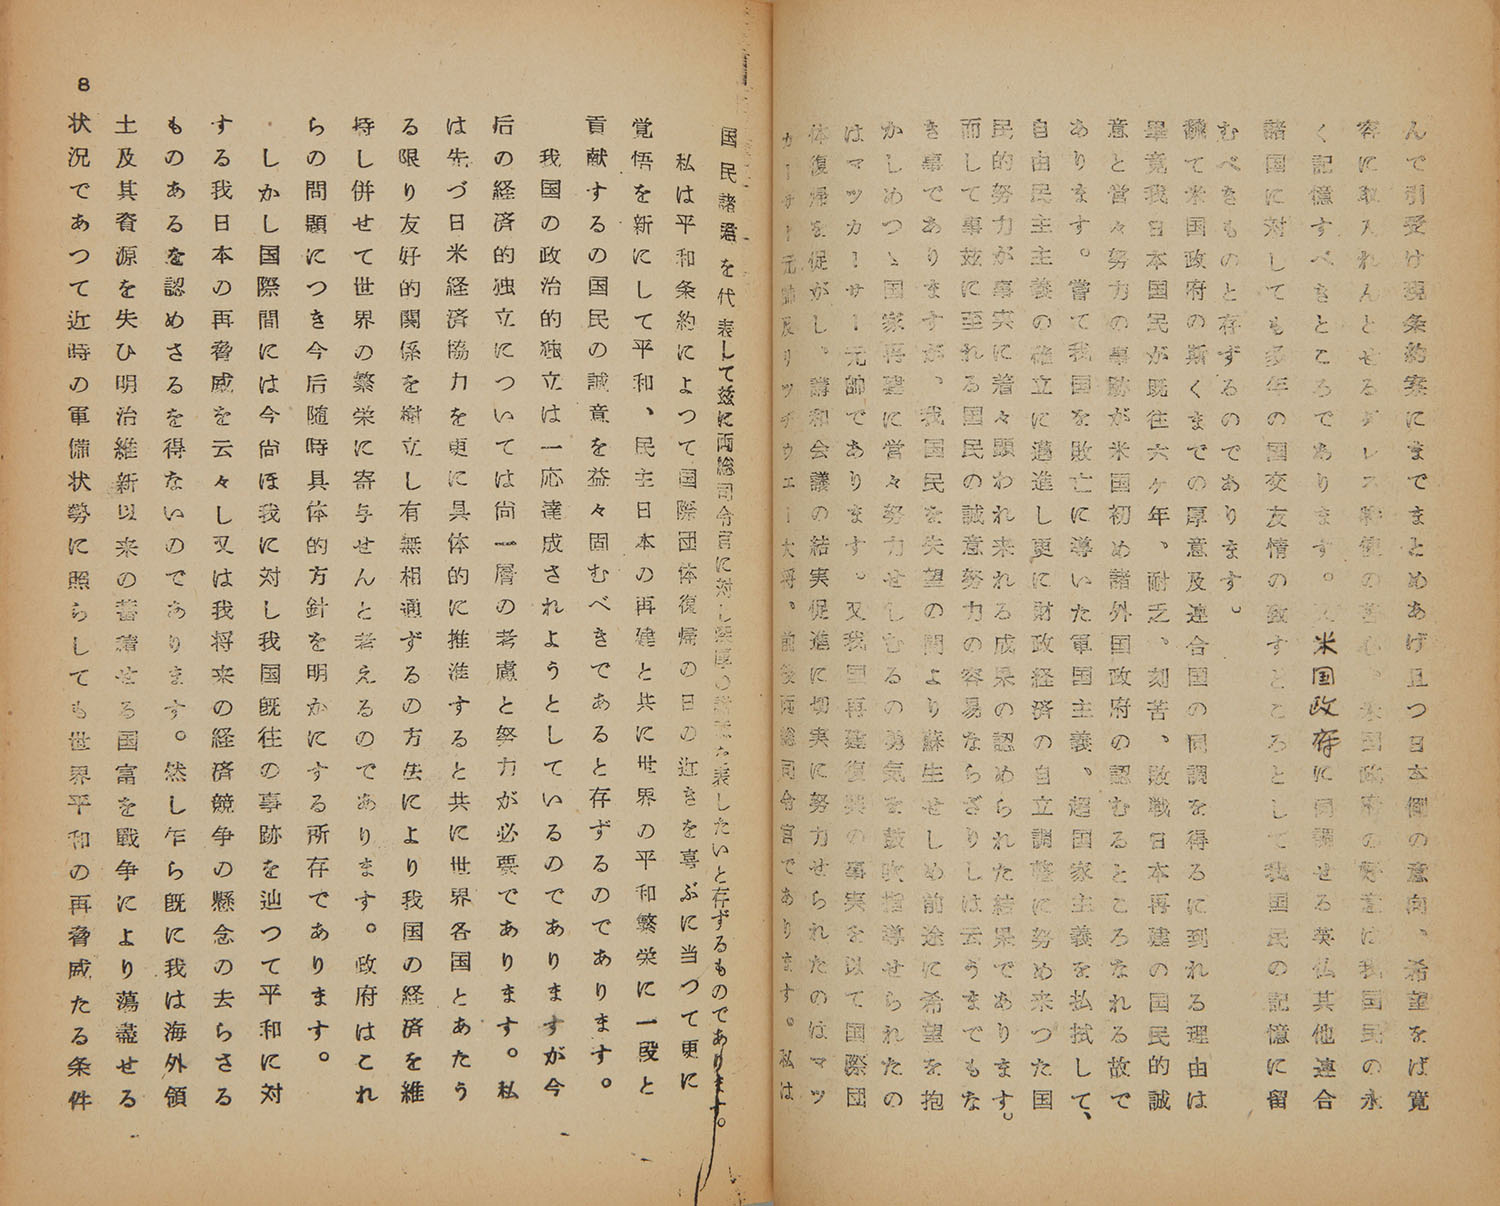 んで引受け現条約案にまでまとめあげ且つ日本側の意向、希望をば寛
容に取入れんとせるダレス特使の苦心、米国政府の好意は我国民の永
く記憶すべきところであります。又米国政府に同調せる英仏其他連合
諸国に対しても多年の国交友情の致すところとして我国民の記憶に留
むべきものと存ずるのであります。
飜て米国政府の斯くまでの厚意及連合国の同調を得るに到れる理由は
畢竟我日本国民が既往六ヶ年、耐乏、刻苦、敗戦日本再建の国民的誠
意と営々努力の事跡が米国初め諸外国政府の認むるところなれる故で
あります。嘗て我国を敗亡に導いた軍国主義、超国家主義を払拭して、
自由民主主義の確立に邁進し更に財政経済の自立調整に努め来つた国
民的努力が事実に着々顕われ来れる成果の認められた結果であります。
而して事玆に至れる国民の誠意努力の容易ならざりしは云うまでもな
き事でありますが、我国民を失望の間より蘇生せしめ前途に希望を抱
かしめつゝ国家再建に営々努力せしむるの勇気を鼓吹指導せられたの
はマツカーサー元帥であります。又我国再建復興の事実を以て国際団
体復帰を促がし、講和会議の結実促進に切実に努力せられたのはマツ
カーサー元帥及リツヂウエー大将、前後両総司令官であります。私は
国民諸君を代表して玆に両総司令官に対し深厚の謝意を表したいと存ずるものであります。
私は平和条約によつて国際団体復帰の日の近きを喜ぶに当つて更に
覚悟を新にして平和、民主日本の再建と共に世界の平和繁栄に一段と
貢献するの国民の誠意を益々固むべきであると存ずるのであります。
我国の政治的独立は一応達成されようとしているのでありますが今
后の経済的独立については尚一層の考慮と努力が必要であります。私
は先づ日米経済協力を更に具体的に推進すると共に世界各国とあたう
る限り友好的関係を樹立し有無相通ずるの方法により我国の経済を維
持し併せて世界の繁栄に寄与せんと考えるのであります。政府はこれ
らの問題につき今后随時具体的方針を明かにする所存であります。
しかし国際間には今尚ほ我に対し我国既往の事跡を辿つて平和に対
する我日本の再脅威を云々し又は我将来の経済競争の懸念の去らさる
ものあるを認めさるを得ないのであります。然し乍ら既に我は海外領
土及其資源を失ひ明治維新以来の蓄積せる国富を戰争により蕩盡せる
状況であつて近時の軍備状勢に照らしても世界平和の再脅威たる条件
8